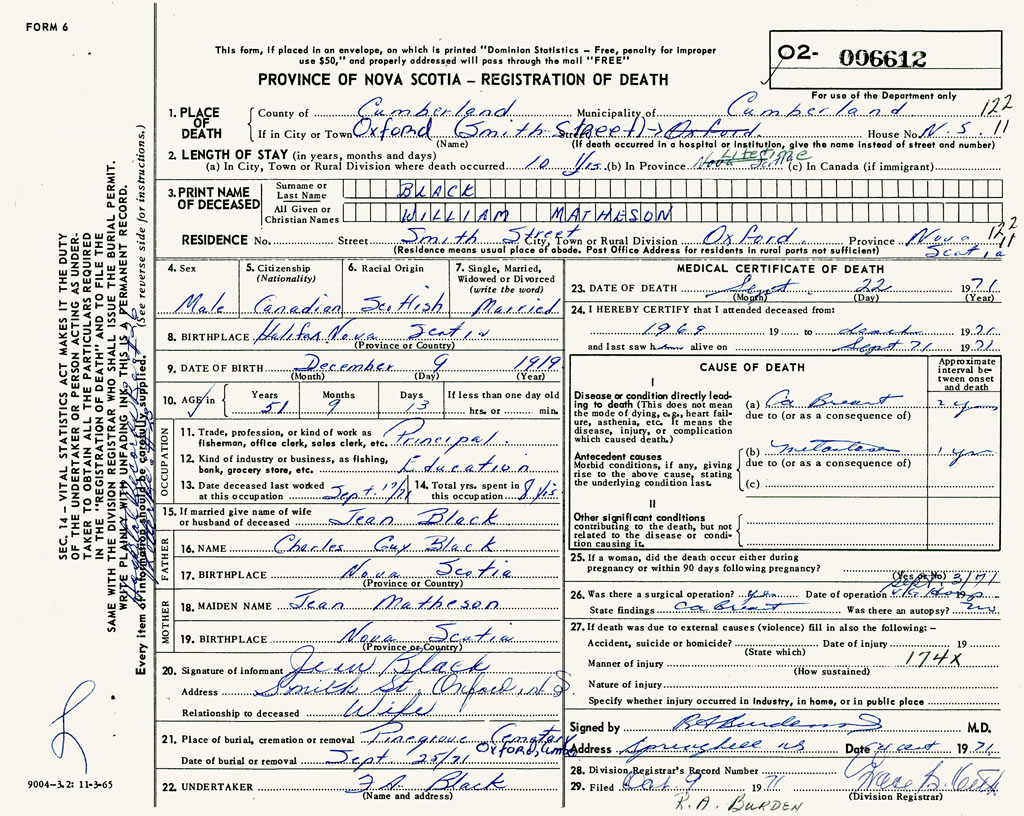 FORM 6
This form, if placed in an envelope, on which is printed "Dominion Statistics – Free, penalty for improper
use $50," and properly addressed will pass through the mail "FREE"
PROVINCE OF NOVA SCOTIA – REGISTRATION OF DEATH
O2- 006612
For use of the Department only
1. PLACE OF DEATH
County of Cumberland Municipality of Cumberland 122
If in City or Town Oxford (Smith Street) → Oxford. House No. N.S. 11
(Name) (If death occurred in a hospital or institution, give the name instead of street and number)
2. LENGTH OF STAY (in years, months and days)
(a) In City, Town or Rural Division where death occurred 10 Yrs. (b) In Province Nova Scotia Lifetime (c) In Canada (if immigrant)
3. PRINT NAME OF DECEASED
Surname or Last Name BLACK
All Given or Christian Names WILLIAM MATHESON
RESIDENCE No. Street Smith Street City, Town or Rural Division Oxford. Province Nova Scotia 122 11
(Residence means usual place of abode. Post Office Address for residents in rural parts not sufficient)
4. Sex Male
5. Citizenship (Nationality) Canadian
6. Racial Origin Scottish
7. Single, Married, Widowed or Divorced (write the word) Married
8. BIRTHPLACE Halifax Nova Scotia
(Province or Country)
9. DATE OF BIRTH December 9 1919
(Month) (Day) (Year)
10. AGE in Years 51 Months 9 Days 13 If less than one day old hrs. or min.
OCCUPATION
11. Trade, profession, or kind of work as fisherman, office clerk, sales clerk, etc. Principal.
12. Kind of industry or business, as fishing, bank, grocery store, etc. Education
13. Date deceased last worked at this occupation Sept. 17/71
14. Total yrs. spent in this occupation 8 yrs
15. If married give name of wife or husband of deceased Jean Black
FATHER
16. NAME Charles Guy Black
17. BIRTHPLACE Nova Scotia
(Province or Country)
MOTHER
18. MAIDEN NAME Jean Matheson
19. BIRTHPLACE Nova Scotia
(Province or Country)
20. Signature of informant Jean Black
Address Smith St. Oxford, N.S
Relationship to deceased Wife
21. Place of burial, cremation or removal Pinegrove Cemetary Oxford,
Date of burial or removal Sept 25/71
22. UNDERTAKER F.A. Black
(Name and address)
MEDICAL CERTIFICATE OF DEATH
23. DATE OF DEATH Sept. 22 1971
(Month) (Day) (Year)
24. I HEREBY CERTIFY that I attended deceased from:
1969 19 to death 1971
and last saw him alive on Sept 71 1971
CAUSE OF DEATH
Approximate interval between onset and death
I
Disease or condition directly leading to death (This does not mean the mode of dying, e.g., heart failure, asthenia, etc. It means the disease, injury, or complication which caused death.)
(a) Ca Breast 2 years
due to (or as a consequence of)
Antecedent causes
Morbid conditions, if any, giving rise to the above cause, stating the underlying condition last.
(b) metastases 1 yr
due to (or as a consequence of)
(c)
II
Other significant conditions
contributing to the death, but not related to the disease or condition causing it.
25. If a woman, did the death occur either during pregnancy or within 90 days following pregnancy?
(Yes or No)
26. Was there a surgical operation? yes Date of operation Sept. 3/71 19
State findings ca breast Was there an autopsy? no
27. If death was due to external causes (violence) fill in also the following: –
Accident, suicide or homicide? Date of injury 19
(State which) 174X
Manner of injury
(How sustained)
Nature of injury
Specify whether injury occurred in Industry, in home, or in public place
Signed by M.D.
Address Springhill NS Date 4 oct 1971
28. Division Registrar's Record Number
29. Filed Oct. 9 1971
(Division Registrar)
R.A. BURDEN
SEC. 14 – VITAL STATISTICS ACT MAKES IT THE DUTY
OF THE UNDERTAKER OR PERSON ACTING AS UNDER-
TAKER TO OBTAIN ALL THE PARTICULARS REQUIRED
IN THE "REGISTRATION OF DEATH" AND TO FILE THE
SAME WITH THE DIVISION REGISTRAR WHO SHALL ISSUE THE BURIAL PERMIT.
WRITE PLAINLY WITH UNFADING INK. THIS IS A PERMANENT RECORD.
Every item of information should be carefully supplied. (See reverse side for instructions.)
9004-3.2: 11-3-65